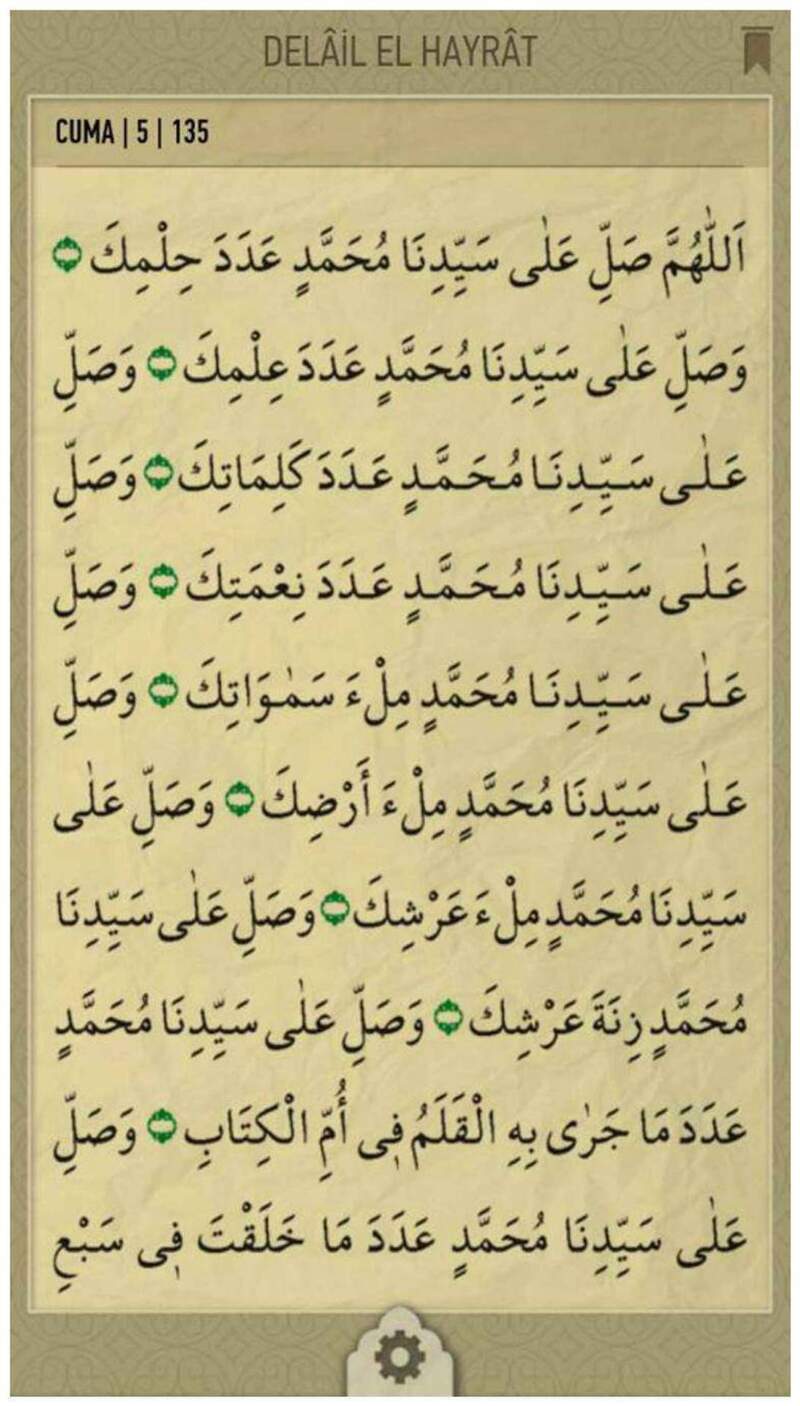 DELÂİL EL HAYRÂT
CUMA | 5 | 135
اَللّٰهُمَّ صَلِّ عَلٰى سَيِّدِنَا مُحَمَّدٍ عَدَدَ حِلْمِكَ
وَصَلِّ عَلٰى سَيِّدِنَا مُحَمَّدٍ عَدَدَ عِلْمِكَ وَصَلِّ
عَلٰى سَيِّدِنَا مُحَمَّدٍ عَدَدَ كَلِمَاتِكَ وَصَلِّ
عَلٰى سَيِّدِنَا مُحَمَّدٍ عَدَدَ نِعْمَتِكَ وَصَلِّ
عَلٰى سَيِّدِنَا مُحَمَّدٍ مِلْءَ سَمٰوَاتِكَ وَصَلِّ
عَلٰى سَيِّدِنَا مُحَمَّدٍ مِلْءَ أَرْضِكَ وَصَلِّ عَلٰى
سَيِّدِنَا مُحَمَّدٍ مِلْءَ عَرْشِكَ وَصَلِّ عَلٰى سَيِّدِنَا
مُحَمَّدٍ زِنَةَ عَرْشِكَ وَصَلِّ عَلٰى سَيِّدِنَا مُحَمَّدٍ
عَدَدَ مَا جَرٰى بِهِ الْقَلَمُ فِى أُمِّ الْكِتَابِ وَصَلِّ
عَلٰى سَيِّدِنَا مُحَمَّدٍ عَدَدَ مَا خَلَقْتَ فِى سَبْعِ